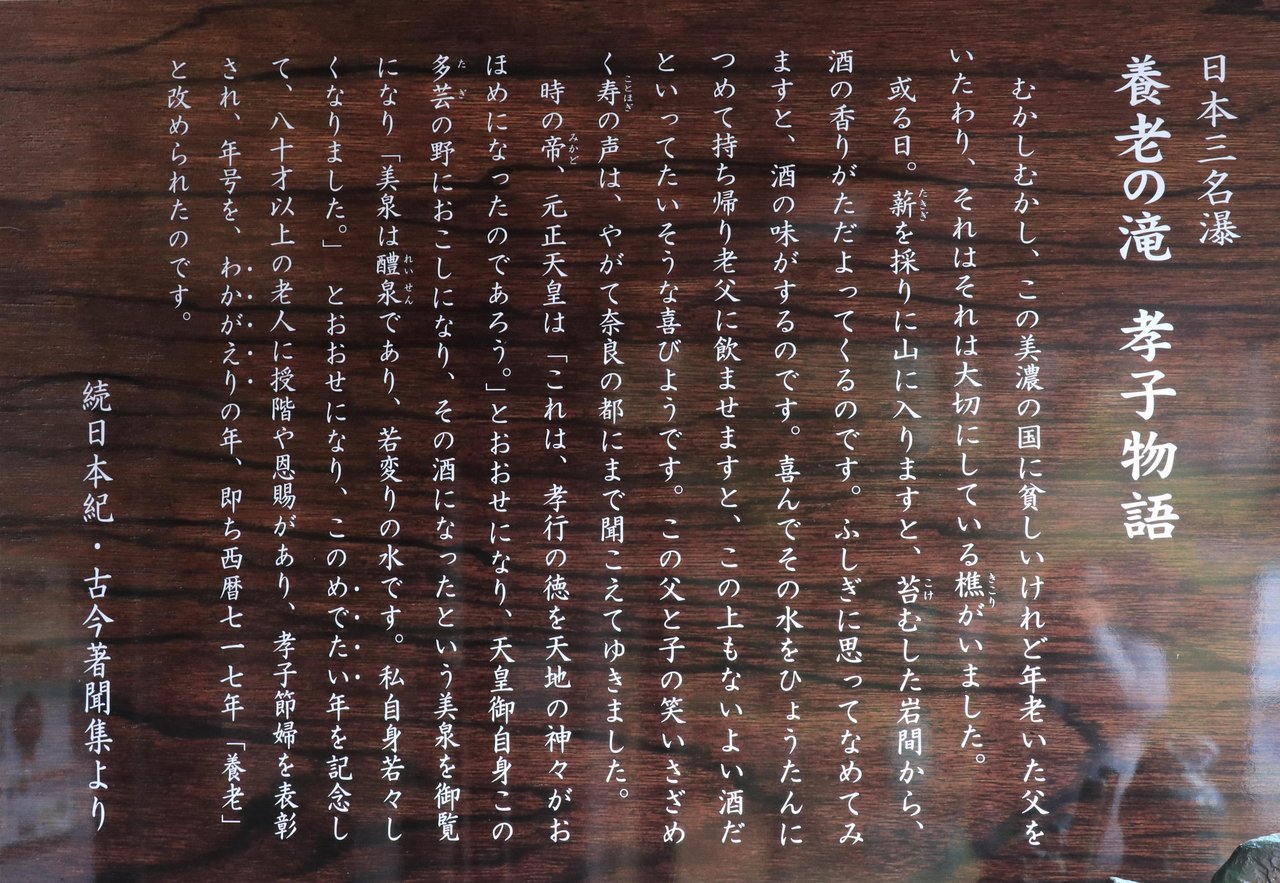 日本三名瀑
養老の滝　孝子物語
むかしむかし、この美濃の国に貧しいけれど年老いた父を
いたわり、それはそれは大切にしている樵がいました。
或る日。薪を採りに山に入りますと、苔むした岩間から、
酒の香りがただよってくるのです。ふしぎに思ってなめてみ
ますと、酒の味がするのです。喜んでその水をひょうたんに
つめて持ち帰り老父に飲ませますと、この上もないよい酒だ
といってたいそうな喜びようです。この父と子の笑いさざめ
く寿の声は、やがて奈良の都にまで聞こえてゆきました。
時の帝、元正天皇は「これは、孝行の徳を天地の神々がお
ほめになったのであろう。」とおおせになり、天皇御自身この
多芸の野におこしになり、その酒になったという美泉を御覧
になり「美泉は醴泉であり、若変りの水です。私自身若々し
くなりました。」とおおせになり、このめでたい年を記念し
て、八十才以上の老人に授階や恩賜があり、孝子節婦を表彰
され、年号を、わかがえりの年、即ち西暦七一七年「養老」
と改められたのです。
続日本紀・古今著聞集より